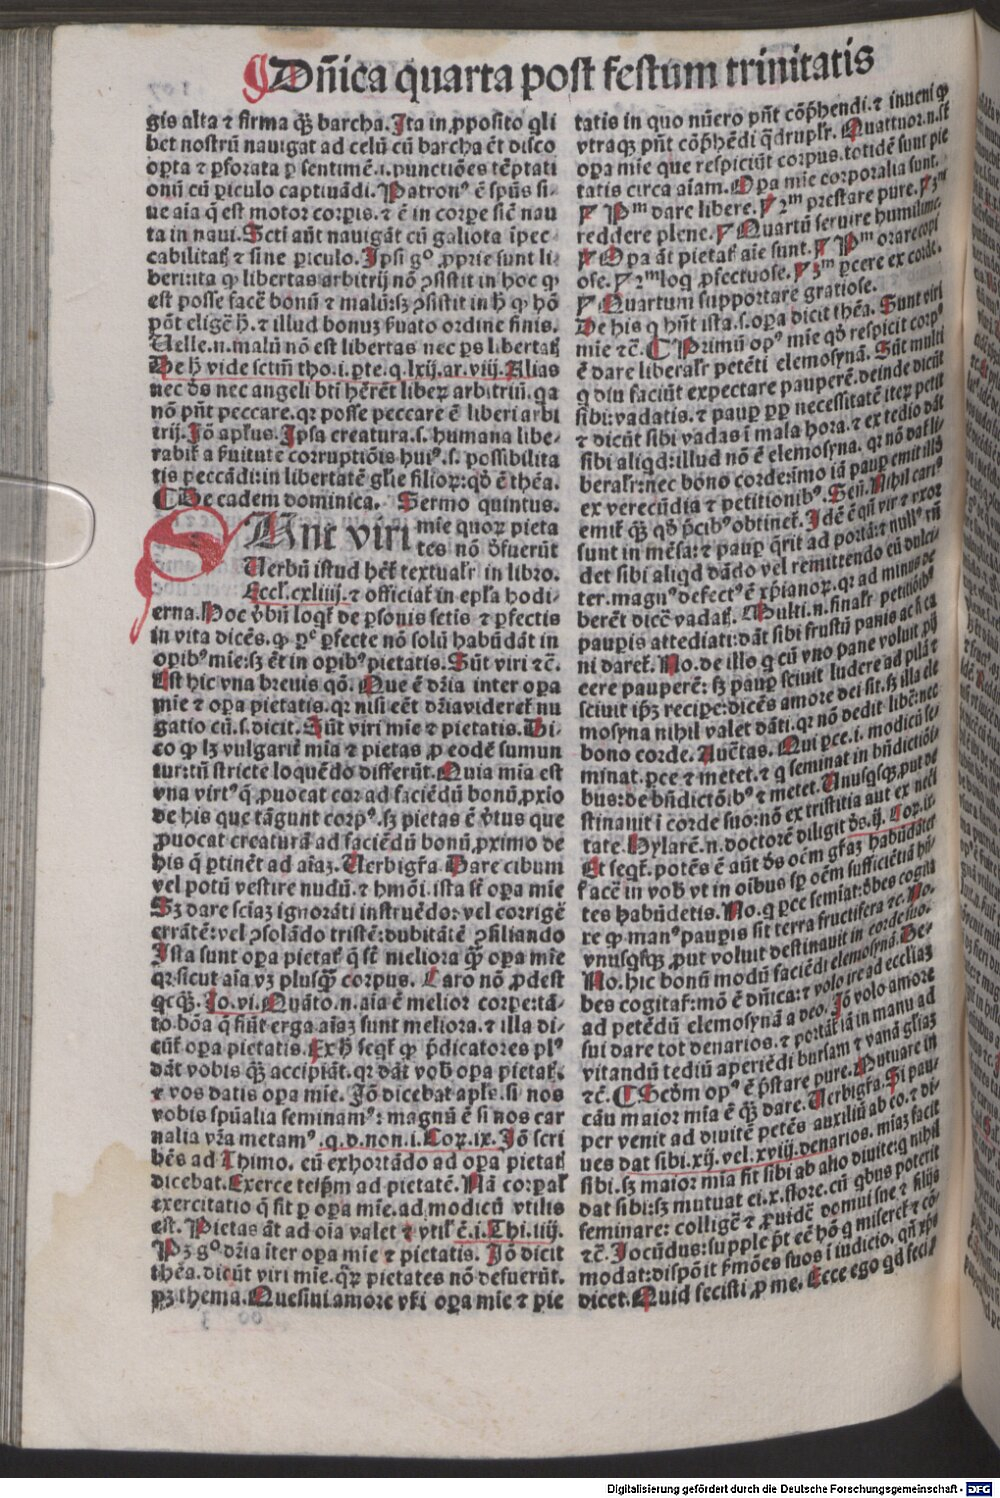 Dn̄ica quarta post festum trinitatis
gis alta ⁊ firma qꝫ̄ barcha. Ita in ꝓposito qli
bet nostrū nauigat ad celū cū barcha ēt disco
oꝑta ⁊ ꝑforata ꝑ sentimē.i. punctiões tēptati
onū cū ꝑiculo captiuādi. Patronꝰ ē spūs si-
ue aīa q̄ est motor corpis. ⁊ ē in corpe sic̄ nau
ta in naui. Scti aūt nauigāt cū galiota īpec-
cabilitatꝭ ⁊ sine ꝑiculo. Ipsi gͦ ꝓprie sunt li-
beri: ita ꝙ libertas arbitrij nō ꝯsistit in hoc ꝙ
est posse facē bonū ⁊ malū: sꝫ ꝯsistit in ħ ꝙ hō
pōt eligē ħ. ⁊ illud bonuꝫ ẜuato ordine finis.
Uelle.n. malū nō est libertas nec ps libertatꝭ
De ħ vide sctm̄ tho. i. pte. q. lxij. ar. viij. Alias
nec d̄s nec angeli bti hērēt libeꝝ arbitriū. qa
nō pn̄t peccare. qꝛ posse peccare ē liberi arbi
trij. Jō apl̄us. Ipsa creatura .s. humana libe-
rabit̄ a ẜuitute corruptiōis huiꝰ .s. possibilita
tis peccādi: in libertatē gl̄ie filioꝝ: qd̓ ē thēa.
De eadem dominica. Sermo quintus.
SUnt viri mie quoꝝ pieta
tes nō d̓fuerūt
Uerbū istud hēt̄ textualr̄ in libro.
Eccl̄. cxliiij. ⁊ officiat̄ in epl̄a hodi-
erna. Hoc v̓bū loqt̄ de ꝑsonis sctis ⁊ ꝑfectis
in vita dicēs. ꝙ ꝑfecte nō solū habūdāt in
oꝑibꝰ mie: sꝫ ēt in oꝑibꝰ pietatis. Sūt viri ⁊c.
Est hic vna breuis qō. Que ē dr̄ia inter oꝑa
mie ⁊ oꝑa pietatis. qꝛ nisi eēt dr̄ia videret̄ nu
gatio cū .s. dicit. Sūt viri mie ⁊ pietatis. Di-
co ꝙ lꝫ vulgarit̄ mīa ⁊ pietas ꝓ eodē sumun
tur: tn̄ stricte loquēdo differūt. Quia mīa est
vna virtꝰ q̄ ꝓuocat cor ad faciēdū bonū ꝓxīo
de his que tāgunt corpꝰ. sꝫ pietas ē v̓tus que
ꝓuocat creaturā ad faciēdū bonū ꝓximo de
his q̄ ꝑtinēt ad aīaꝫ. Uerbigr̄a. Dare cibum
vel potū vestire nudū. ⁊ hmōi. ista st̄ oꝑa mie
Sꝫ dare sciaꝫ ignorāti instruēdo: vel corrigē
errātē: vel ꝯsolādo tristē: dubitātē ꝯsiliando
Ista sunt oꝑa pietat̄ q̄ st̄ meliora qꝫ̄ oꝑa mie
qꝛ sicut aīa vꝫ plusqꝫ̄ corpus. Caro nō ꝓdest
qcqꝫ̄. Jo. vi. Quāto .n. aīa ē melior corpe: tā-
to bōa q̄ fiūt erga aīaꝫ sunt meliora. ⁊ illa di-
cūt̄ oꝑa pietatis. Ex ħ seqt̄ ꝙ p̄dicatores plꝰ
dāt vobis qꝫ̄ accipiāt. qꝛ dāt vob̓ oꝑa pietat̄.
⁊ vos datis oꝑa mie. Jō dicebat apl̄s. si nos
vobis spūalia seminamꝰ: magnū ē si nos car
nalia vr̄a metamꝰ. q. d. non. i. Coꝝ. ix. Jō scri
bēs ad Thimo. eū exhortādo ad oꝑa pietatꝭ
dicebat. Exerce teip̄m ad pietatē. Nā corꝑal̄
exercitatio q̄ fit ꝑ oꝑa mie. ad modicū vtilis
est. Pietas āt ad oīa valet ⁊ vtil̄ ē. i. Thi. iiij.
Pꝫ gͦ dr̄ia iter oꝑa mie ⁊ pietatis. Jō dicit
thēa. dicūt viri mie. qꝝ pietates nō defuerūt.
pꝫ thema. Quesiui amore vr̄i oꝑa mie ⁊ pie
tatis in quo nūero pn̄t cōp̄hendi. ⁊ inueni ꝙ
vtraqꝫ pn̄t cōp̄hēdi q̄druplr̄. Quattuor .n. st̄
oꝑa mie que respiciūt corpus. totidē sunt pie
tatis circa aīam. Oꝑa mie corporalia sunt.
Pᵐ dare libere. 2ᵐ prestare pure. 3ᵐ
reddere plene. Quartū seruire humilime.
Oꝑa āt pietat̄ aīe sunt. Pᵐ orare copi
ose. 2ᵐ loq ꝓfectuose. 3ᵐ ꝑcere ex corde.
Quartum supportare gratiose.
De his q hn̄t ista .s. oꝑa dicit thēa. Sunt viri
mie ⁊c. Primū opꝰ mie qd̓ respicit corpꝰ
ē dare liberalr̄ petēti elemosynā. Sūt multi
q diu faciūt expectare pauperē. deinde dicūt
sibi: vadatis. ⁊ paup ꝓp necessitatē iteꝝ petit
⁊ dicūt sibi vadas ī mala hora. ⁊ ex tedio dāt
sibi aliqd: illud nō ē elemosyna. qꝛ nō dat̄ li-
beralr̄: nec bono corde: imo iā paup emit illō
ex verecūdia ⁊ petitionibꝰ. Señ. Nihil cariꝰ
emit̄ qꝫ̄ qd̓ p̄cibꝰ obtinet̄. Idē ē qn̄ vir ⁊ vxor
sunt in mēsa: ⁊ paup q̄rit ad portā: ⁊ nullꝰ rn̄
det sibi aliqd dādo vel remittendo eū dulci-
ter. magnꝰ defectꝰ ē xp̄ianoꝝ. qꝛ ad minus de
berēt dicē vadatꝭ. Multi .n. finalr̄ petitiōibꝰ
paupis attediati: dāt sibi frustū panis
ni daret̄. No. de illo q cū vno pane voluit ꝑij
cere pauperē: sꝫ paup sciuit ludere ad pilā ⁊
sciuit ip̄ꝫ reciꝑe: dicēs amore dei sit. sꝫ illa ele
mosyna nihil valet dāti. qꝛ nō dedit libē: nec
bono corde. Auc̄tas. Qui ꝑce .i. modicū se-
minat. ꝑce ⁊ metet. ⁊ q seminat in bn̄dictiōi-
bus: de bn̄dictōibꝰ ⁊ metet. Unusqsqꝫ put de
stinauit ī corde suo: nō ex tristitia aut ex nēci
tate. Hylarē .n. doctorē diligit d̄s. ij. Coꝝ. ix.
Et seqt̄. potēs ē aūt d̄s oēm gr̄aꝫ habūdātē
facē in vob̓ vt in oībus sp oēm sufficiētiā hn̄-
tes habūdetis. No. q ꝑce semīat: d̓bes cogita
re ꝙ manꝰ paupis sit terra fructifera ⁊c. No.
vnusqsqꝫ ꝓut voluit destinauit in corde suo.
No. hic bonū modū faciēdi elemosynā. De-
bes cogitar̄: mō ē dn̄ica: ⁊ volo ire ad eccl̄iaꝫ
ad petēdū elemosynā a deo. Jō volo amore
sui dare tot denarios. ⁊ portat̄ iā in manu ad
vitandū tediū aperiēdi bursam ⁊ vanā gl̄iaꝫ
⁊c. Scd̓m opꝰ ē p̄stare pure. Mutuare in
cāu maior mīa ē qꝫ̄ dare. Uerbigr̄a. Si pau-
per venit ad diuitē petēs auxiliū ab eo. ⁊ di-
ues dat sibi. xij. vel. xviij. denarios. mīaꝫ facit
sibi. sꝫ maior mīa fit sibi ab alio diuite: q nihil
dat sibi: sꝫ mutuat ei. x. flore. cū qbus poterit
seminare: colligē ⁊ ꝓuidē domui sue ⁊ filijs
⁊c. Jocūdus: supple p̄t eē hō q miseret̄ ⁊ cō-
modat: dispōit ẜmōes suos ī iudicio. qn̄ xp̄s
dicet. Quid fecisti ꝓ me. Ecce ego qd feci ꝓ
Digitalisierung gefördert durch die Deutsche Forschungsgemeinschaft - DFG